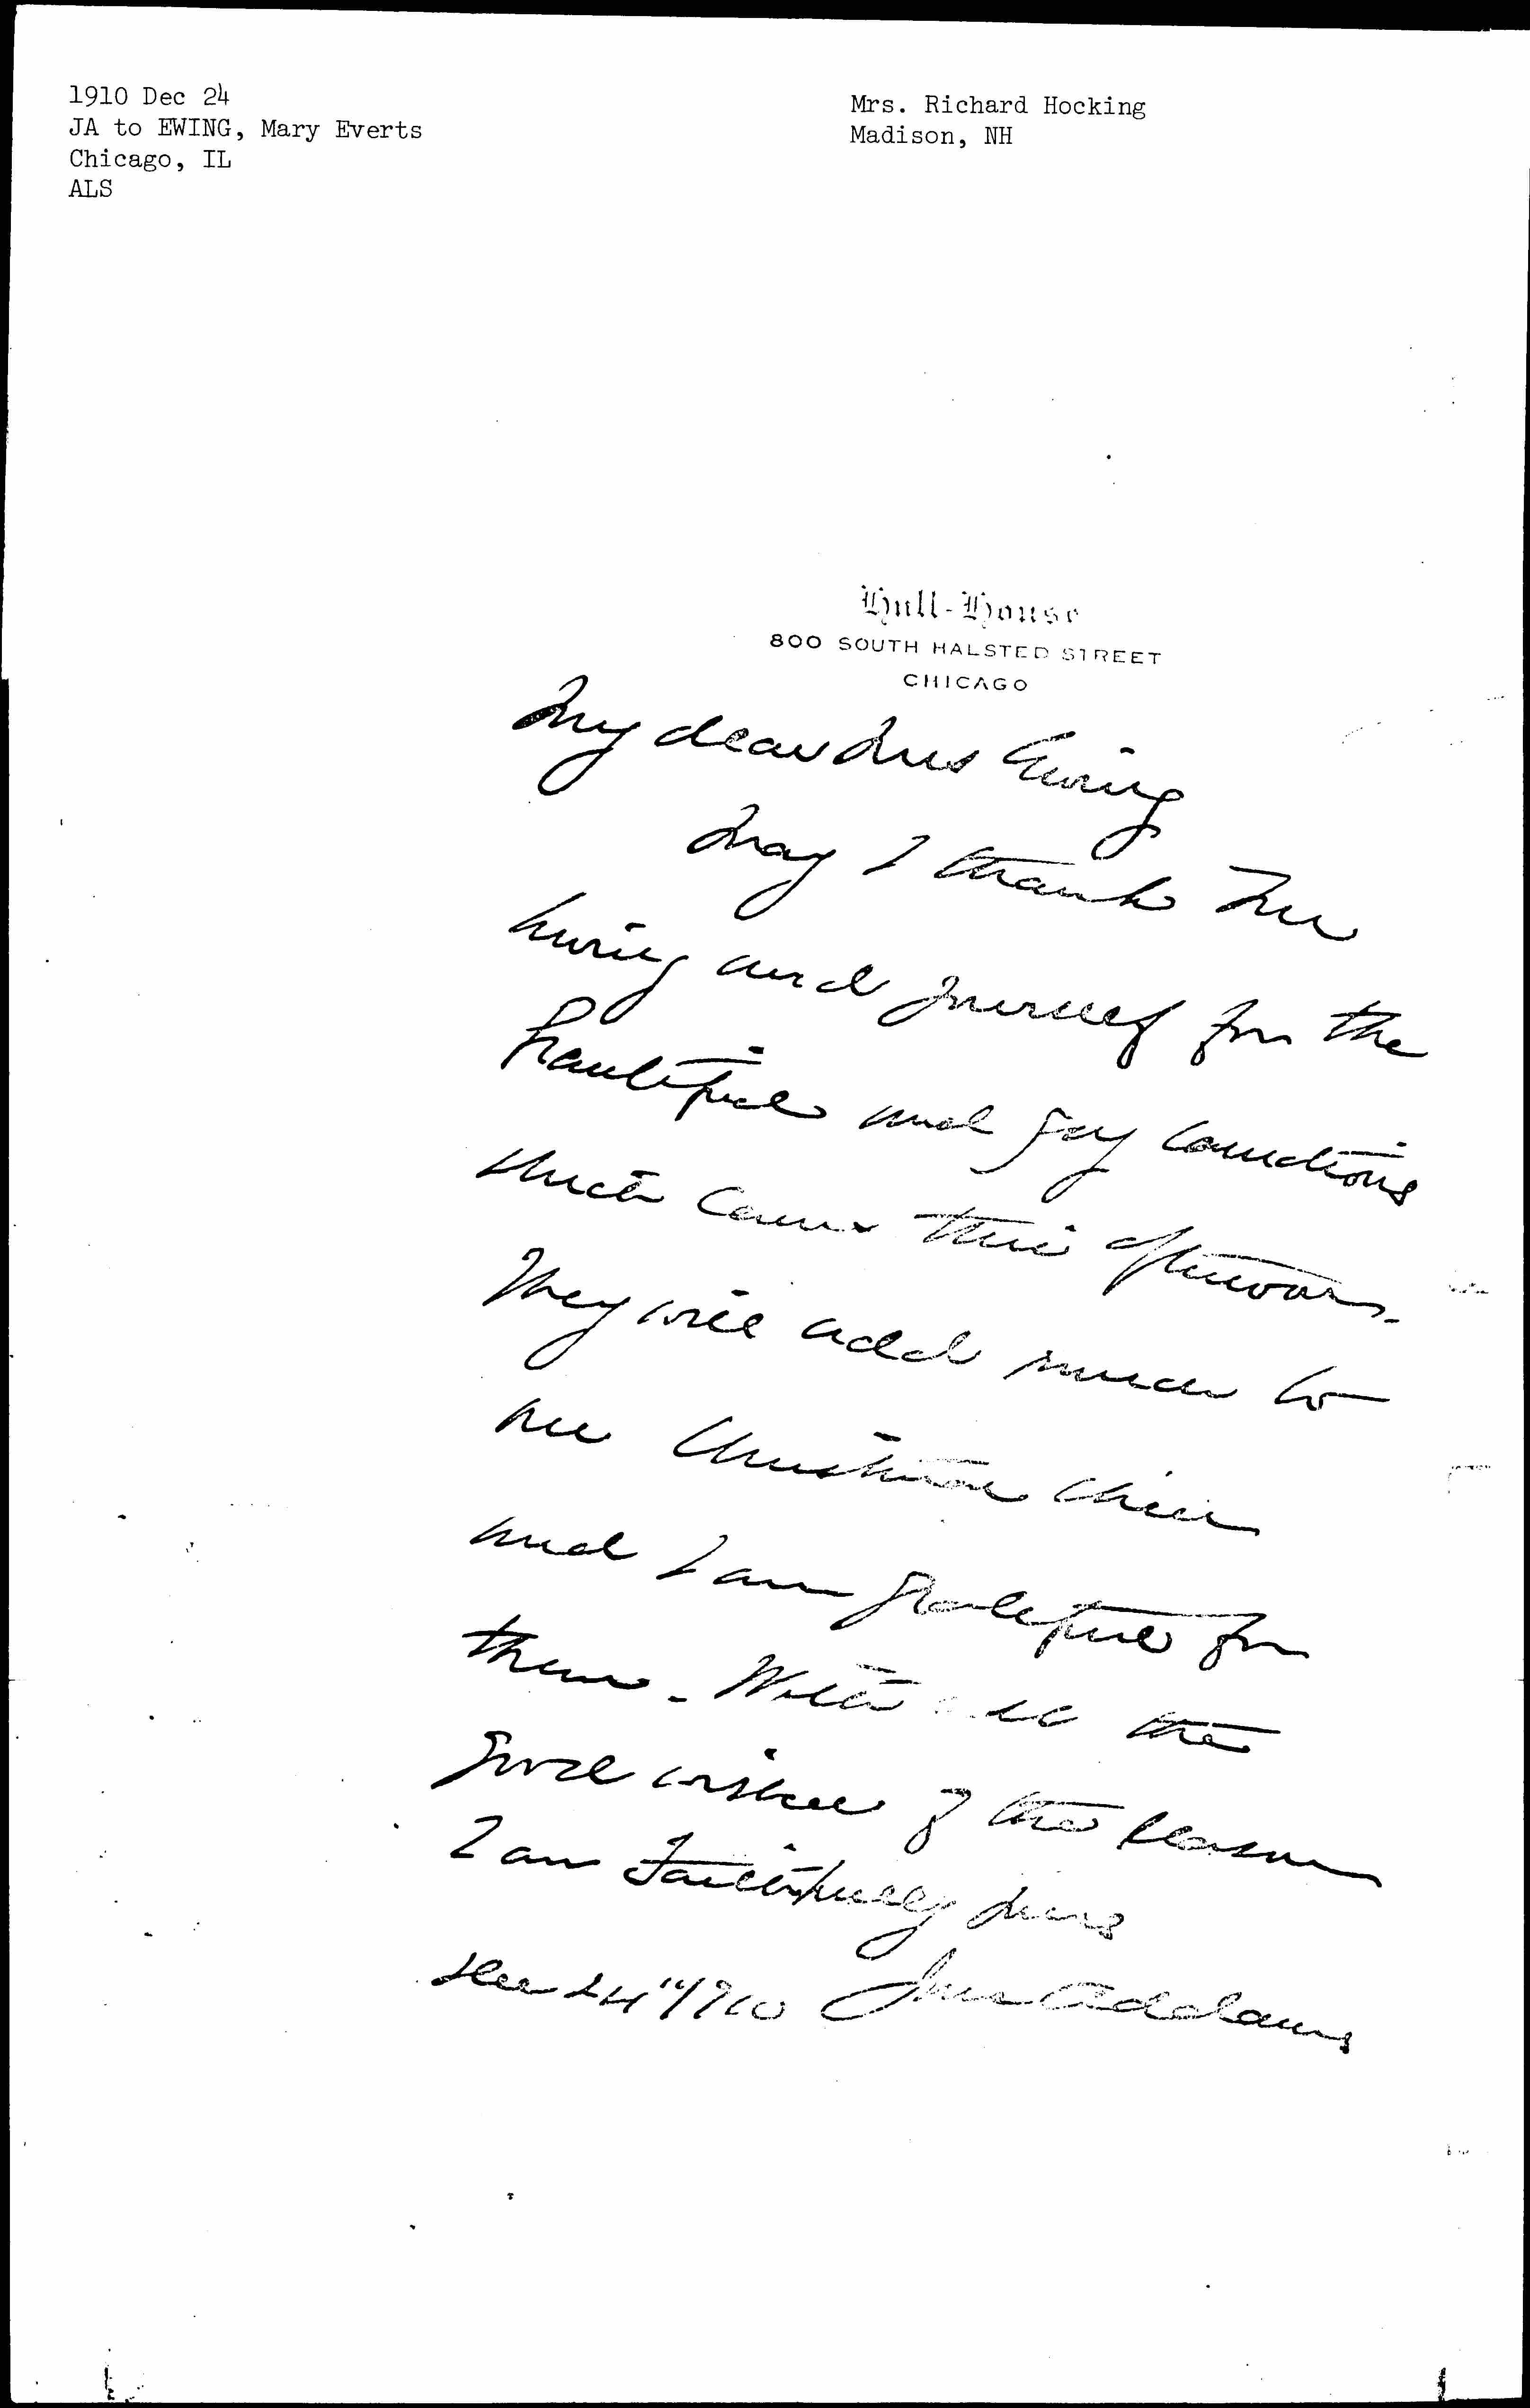 1910 Dec 24
JA to EWING, Mary Everts
Chicago, IL
ALS
Mrs. Richard Hocking
Madison, NH
Hull-House
800 SOUTH HALSTED STREET
CHICAGO
My dear Mrs Ewing
May I thank Mr
Ewing and yourself for the
beautiful and gay carnations
which came this afternoon.
They will add much to
our Christmas cheer
and I am grateful for
them. With all the
good wishes of the season
I am Faithfully yours
Dec 24" 1910 Jane Addams